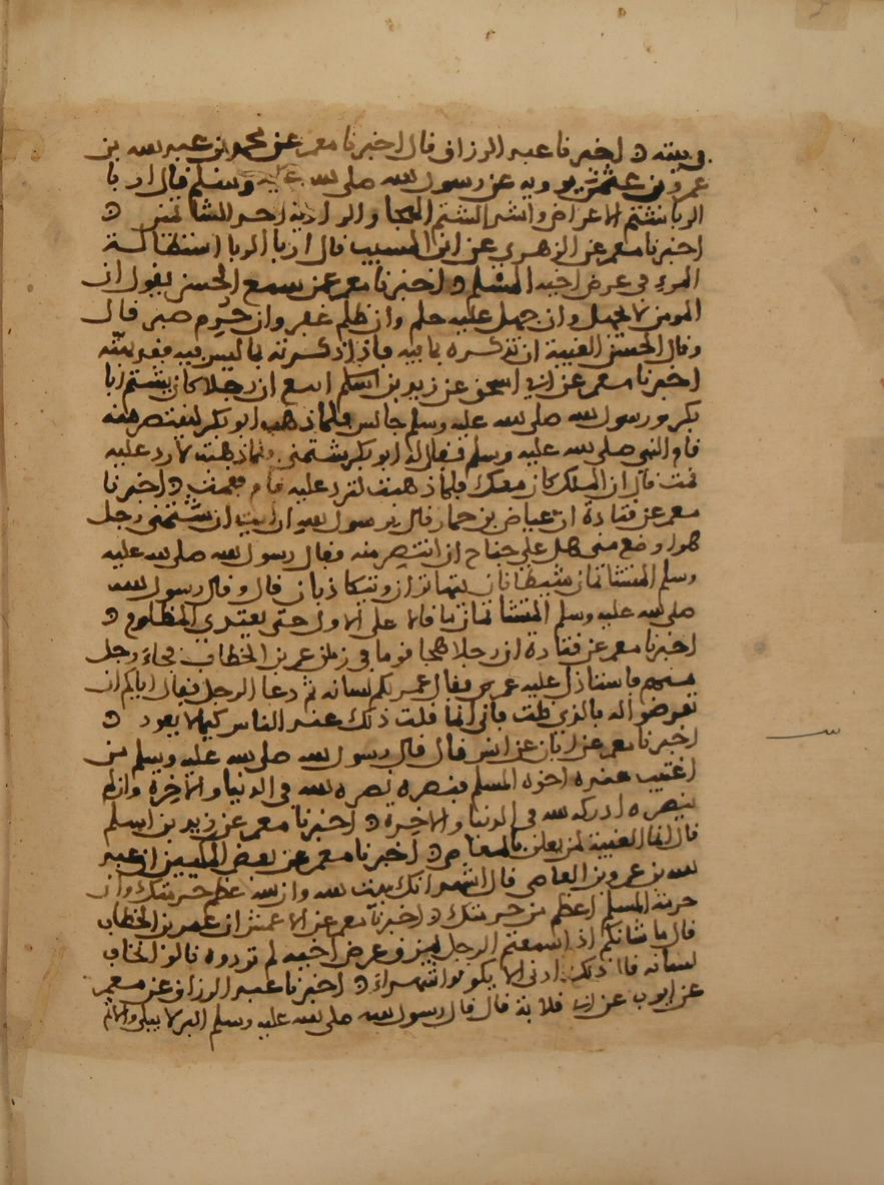 وبيته ه اخبرنا عبد الرزاق قال اخبرنا معمر عن محمد بن عبد الله بن
عمرو بن عثمن يرويه عن رسول الله صلى الله عليه وسلم قال اربا
الربا شتم الاعراض واشد الشتم الهجا والراوية احد الشاتمين ه
اخبرنا معمر عن الزهري عن ابن المسيب قال اربا الربا استطالة
المرء في عرض اخيه المسلم ه اخبرنا معمر عمن سمع الحسن يقول ان
المومن لا يجهل وان جهل عليه حلم وان ظلم غفر وان حرم صبر قال
وقال الحسن الغيبة ان تذكره بما فيه فاذا ذكرته بما ليس فيه فقد بهته
اخبرنا معمر عن زيد بن اسلم ان رجلا كان يشتم ابا
بكر ورسول الله صلى الله عليه وسلم جالس فلما ذهب ابو بكر لينتصر منه
قام النبي صلى الله عليه وسلم فقال له ابو بكر شتمني فلما ذهبت لارد عليه
قمت قال ان الملك كان معك فلما ذهبت لترد عليه قام فقمت ه اخبرنا
معمر عن قتادة ان عياض بن حمار قال يرسول الله ارايت ان شتمني رجل
هو اوضع مني هل علي جناح ان انتصر منه فقال رسول الله صلى الله عليه
وسلم المتشاتمان شيطانان يتهاتران ويتكاذبان قال وقال رسول الله
صلى الله عليه وسلم المتشاتمان ما قالا على الاول حتى يعتدي المظلوم ه
اخبرنا معمر عن قتادة ان رجلا هجا قوما في زمان عمر بن الخطاب فجاء رجل
منهم فاستاذن عليه عمر فقال عمر لكم لسانه ثم دعا الرجل فقال اياكم ان
تعرضوا له بالذي قلت فاني انما قلت ذلك عند الناس كيما لا يعود ه
اخبرنا معمر عن ابان عن انس قال قال رسول الله صلى الله عليه وسلم من
اغتيب عنده اخوه المسلم فنصره نصره الله في الدنيا والاخرة وان لم
ينصره ادركه الله في الدنيا والاخرة ه اخبرنا معمر عن زيد بن اسلم
قال انما الغيبة لمن يعلن بالمعاصي ه اخبرنا معمر عن بعض المكيين ان عبد
الله بن عمرو بن العاصي قال اشهد انك بيت الله وان الله عظم حرمتك وان
حرمة المسلم اعظم من حرمتك ه اخبرنا معمر عن الاعمش ان عمر بن الخطاب
قال ما شانكم اذا سمعتم الرجل يمزق عرض اخيه لم تردوه قالوا نخاف
لسانه قال ذلك ادنى الا يكونوا شهداء ه اخبرنا عبد الرزاق عن معمر
عن ايوب عن ابي قلابة قال قال رسول الله صلى الله عليه وسلم البر لا يبلى والاثم